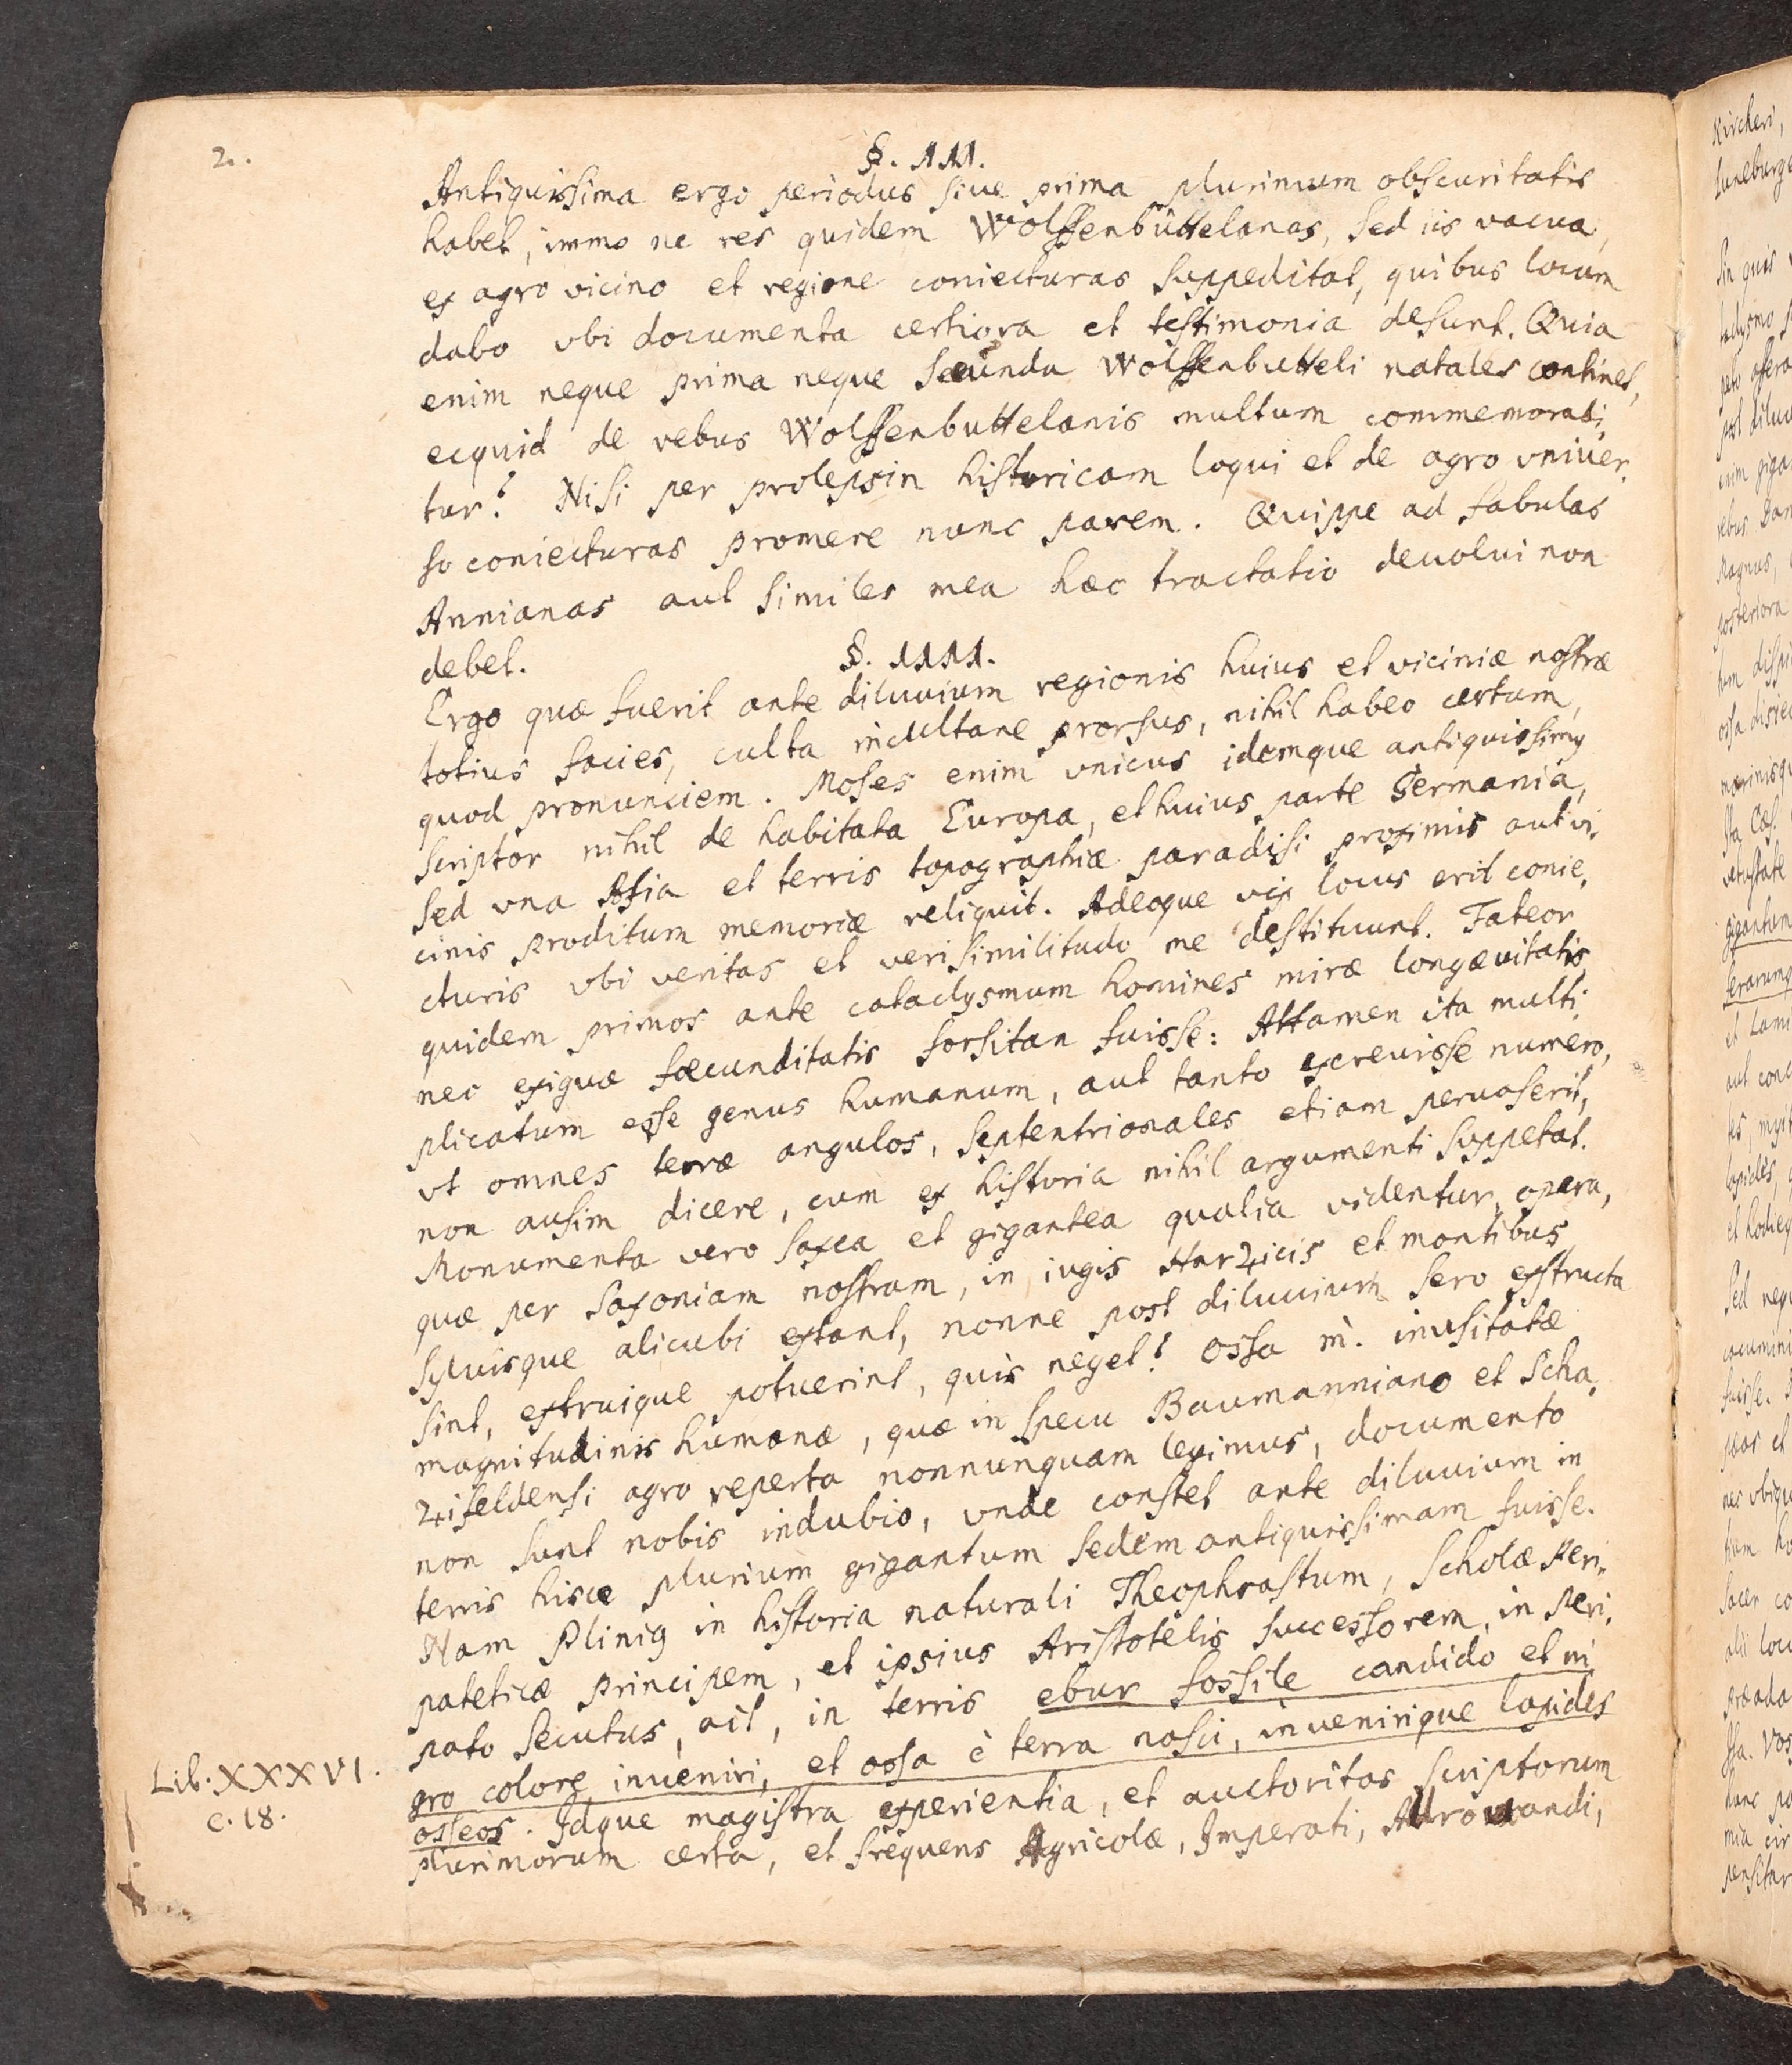 2.
§. III.
Antiquissima ergo periodus siue prima plurimum obscuritatis
habet, immo ne res quidem Wolffenbüttelanas, sed iis vacua,
ex agro vicino et regione coniecturas suppeditat, quibus locum
dabo vbi documenta certiora et testimonia desunt. Quia
enim neque prima neque secunda Wolffenbutteli natales continet,
ecquid de rebus Wolffenbuttelanis multum commemorabi,
tur? Nisi per prolepsin historicam loqui et de agro vniuer,
so coniecturas promere nunc parem. Quippe ad fabulas
Annianas aut similes mea hæc tractatio deuolui non
debet.
§. IIII.
Ergo quæ fuerit ante diluuium regionis huius et viciniæ nostræ
totius facies, culta incultane prorsus, nihil habeo certum,
quod pronunciem. Moses enim vnicus idemque antiquissimg
scriptor nihil de habitata Europa, et huius parte Germania,
sed vna Asia et terris topographiæ paradisi proximis aut vi,
cinis proditum memoriæ reliquit. Adeoque vix locus erit conie,
cturis vbi veritas et verisimilitudo me destituunt. Fateor
quidem primos ante cataclysmum homines miræ longæuitatis
nec exiguæ fœcunditatis forsitan fuisse: Attamen ita multi,
plicatum esse genus humanum, aut tanto excreuisse numero,
vt omnes terræ angulos, septentrionales etiam peruaserit,
non ausim dicere, cum ex historia nihil argumenti suppetat.
Monumenta vero saxea et gigantea qualia videntur, opera,
quæ per Saxoniam nostram, in iugis Harzicis et montibus
syluisque alicubi extant, nonne post diluuium sero exstructa
sint, extruique potuerint, quis neget? Ossa m̀. inusitatæ
magnitudinis humanæ, quæ in specu Baumanniano et Scha,
zifeldensi agro reperta nonnunquam legimus, documento
non sunt nobis indubio, vnde constet ante diluuium in
terris hisce plurium gigantum sedem antiquissimam fuisse.
Nam Pling in historia naturali Theophrastum, Scholæ Peri,
pateticæ principem, et ipsius Aristotelis successorem, in Peri,
pato secutus, ait, in terris ebur fossile candido et ni
gro colore inueniri, et ossa è terra nasci, inuenirique lapides
osseos. Idque magistra experientia, et auctoritas scriptorum
plurimorum certa, et frequens Agricolæ, Imperati, Aldrouandi,
Lib. XXXVI.
c. 18.